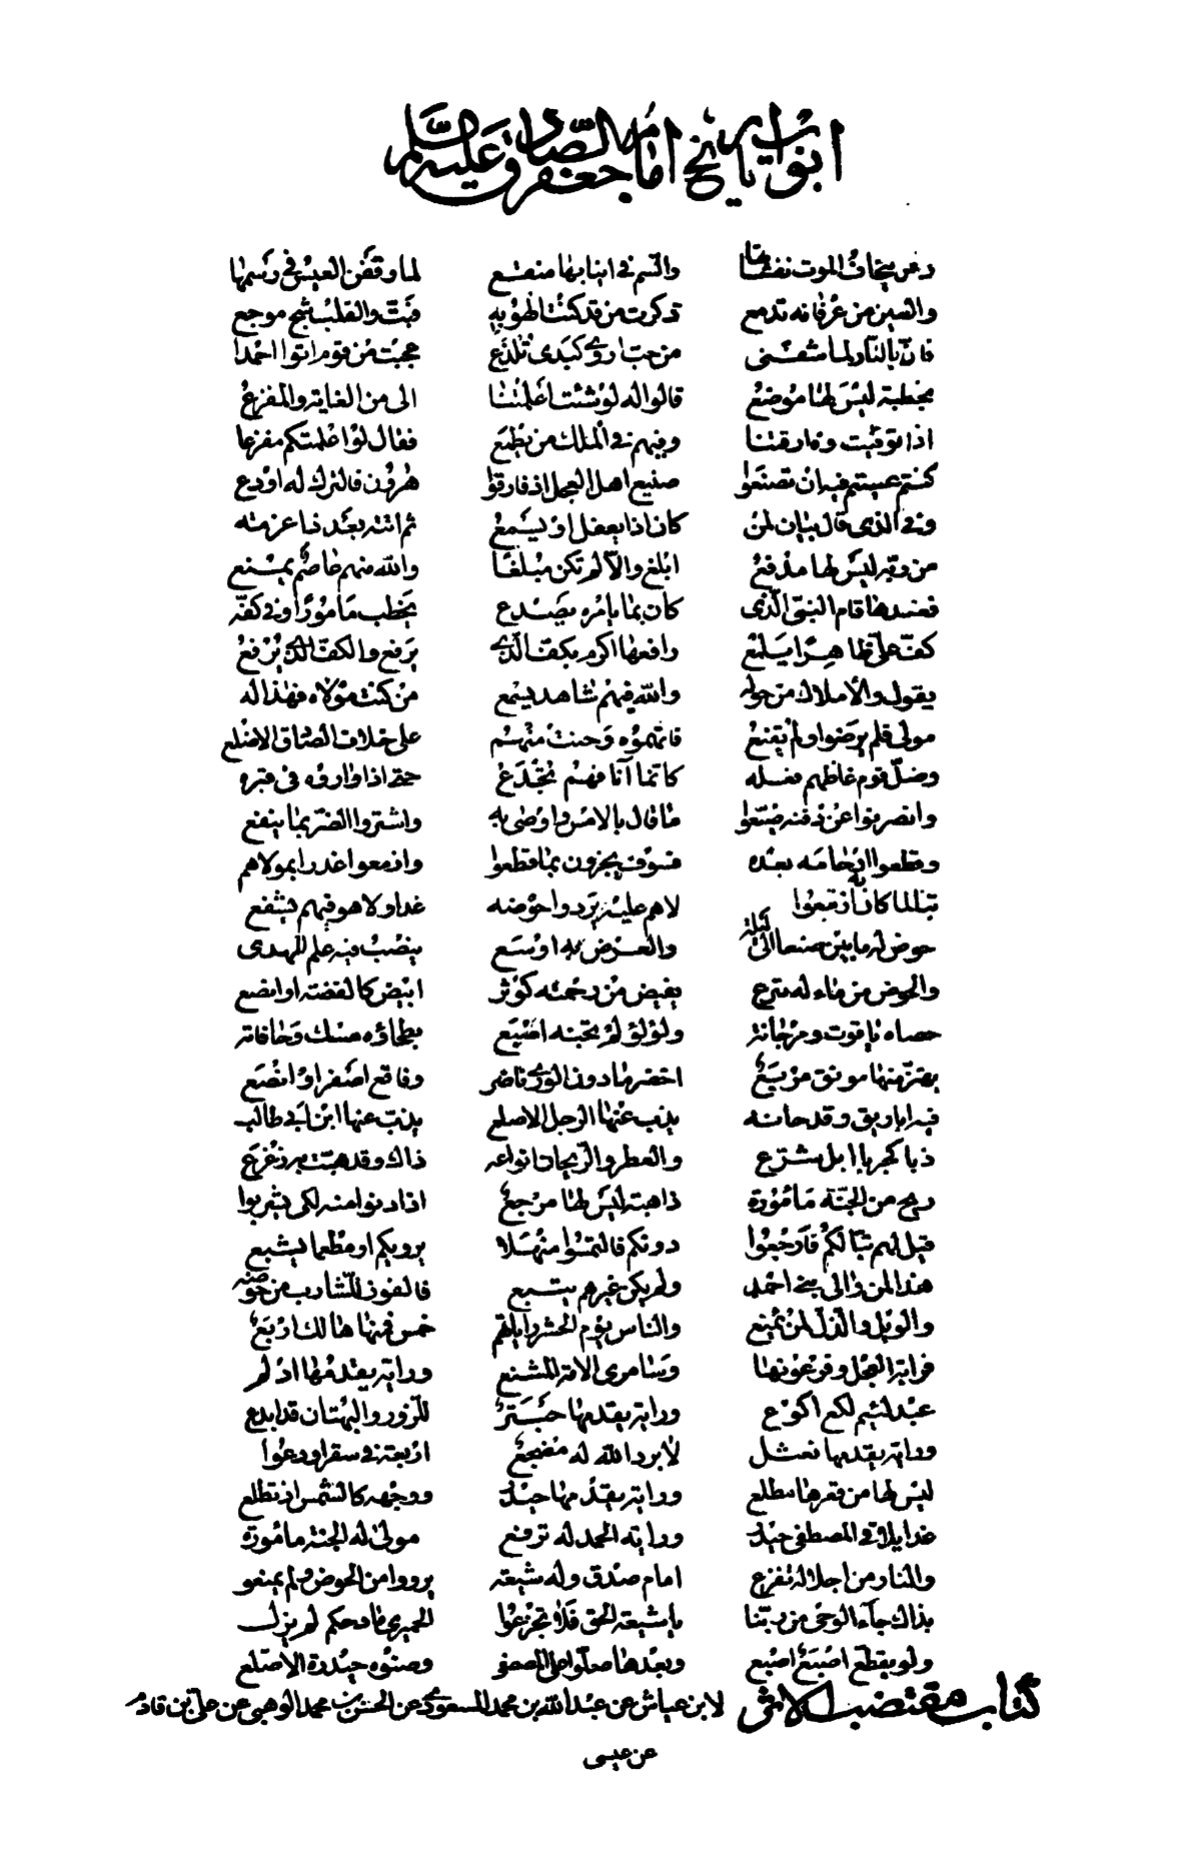 ابواب تاريخ امام جعفر الصادق عليه السلم
رقش يخاف الموت نفثاتها والسم في انيابها منقع لما وقفن العيس في رسمها
والعين من عرفانه تدمع ذكرت من قد كنت الهو به فبت والقلب شج موجع
كان بالنار لما شفني من حب اروى كبدي تلذع عجبت من قوم اتوا احمدا
بخطبة ليس لها موضع قالوا له لو شئت اعلمتنا الى من الغاية والمفزع
اذا توفيت وفارقتنا وفيهم في الملك من يطمع فقال لو اعلمتكم مفزعا
كنتم عسيتم فيه ان تصنعوا صنيع اهل العجل اذ فارقوا هرون فالترك له اودع
وفي الذي قال بيان لمن كان اذا يعقل او يسمع ثم اتته بعد ذا عزمته
من ربه ليس لها مدفع ابلغ والا لم تكن مبلغا والله منهم عاصم يمنع
فعندها قام النبي الذي كان بما يامره يصدع يخطب مامورا وفي كفه
كف علي ظاهرا يلمع رافعها اكرم بكف الذي يرفع والكف الذي يرفع
يقول والاملاك من حوله والله فيهم شاهد يسمع من كنت مولاه فهذا له
مولى فلم يرضوا ولم يقنع فاتهموه وحنت منهم على خلاف الصادق الاضلع
وضل قوم غاظهم فعله كانما آنافهم تجدع حتى اذا واروه في قبره
وانصرفوا عن دفنه ضيعوا ما قال بالامس واوصى به واشتروا الضر بما ينفع
وقطعوا ارحامه بعده فسوف يجزون بما قطعوا وازمعوا غدرا بمولاهم
تبا لما كان به ازمعوا لا هم عليه يردوا حوضه غدا ولا هو فيهم يشفع
حوض له ما بين صنعا الى ايلة والعرض به اوسع ينصب فيه علم للهدى
والحوض من ماء له مترع يفيض من رحمته كوثر ابيض كالفضة او انصع
حصاه ياقوت ومرجانة ولؤلؤ لم تجنه اصبع بطحاؤه مسك وحافاته
يهتز منها مونق مربع اخضر ما دون الورى ناضر وفاقع اصفر او انصع
فيه اباريق وقدحانه يذب عنها الرجل الاصلع يذب عنها ابن ابي طالب
ذبا كجربا ابل شرع والعطر والريحان انواعه ذاك وقد هبت به زعزع
ريح من الجنة مامورة ذاهبة ليس لها مرجع اذا دنوا منه لكي يشربوا
قيل لهم تبا لكم فارجعوا دونكم فالتمسوا منهلا يرويكم او مطعما يشبع
هذا لمن والى بني احمد ولم يكن غيرهم يتبع فالفوز للشارب من حوضه
والويل والذل لمن يمنع والناس يوم الحشر راياتهم خمس فمنها هالك اربع
فراية العجل وفرعونها وسامري الامة المشنع وراية يقدمها ادلم
عبد لئيم لكع اكوع وراية يقدمها حبتر للزور والبهتان قد ابدع
وراية يقدمها نعثل لا برد الله له مضجع اربعة في سقر اودعوا
ليس لها من قعرها مطلع وراية يقدمها حيدر ووجهه كالشمس اذ تطلع
غدا يلاقي المصطفى حيدر وراية الحمد له ترفع مولى له الجنة مامورة
والنار من اجلاله تفزع امام صدق وله شيعة يرووا من الحوض ولم يمنعو
بذاك جآء الوحي من ربنا يا شيعة الحق فلا تجزعوا الحميري مادحكم لم يزل
ولو يقطع اصبع اصبع وبعدها صلوا على المصطفى وصنوه حيدرة الاصلع
كتاب مقتضب الاثر لابن عياش عن عبد الله بن محمد المسعودي عن الحسن بن محمد الوهبي عن علي بن قادم
عن عيسى